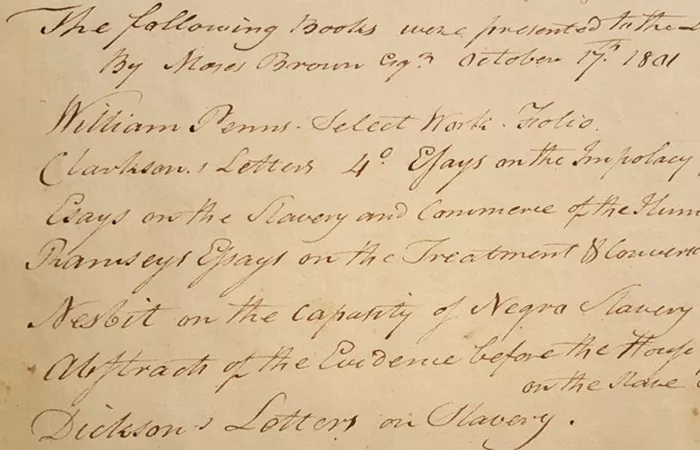 The following Books were presented to the
By Moses Brown Esqr October 17th 1801
William Penns Select Works Folio.
Clarkson's Letters 4o Essays on the Impolacy
Esays on the Slavery and Commerce of the Hum
Ramseys Essays on the Treatment & Convers
Nesbit on the Capasity of Negro Slavery
Abstracts of the Evidence before the House
on the Slave
Dickson's Letters on Slavery.